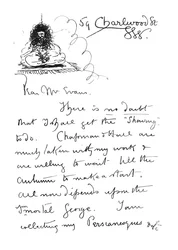 59 Charlwood St
S.W.
Dear Mr Evans.
There is no doubt
that I shall get the "Shaving"
to do. Chapman & Hall are
much taken with my work &
are willing to wait till the
autumn to make a start.
all now depends upon the
Immortal George. I am
collecting my Persianesques